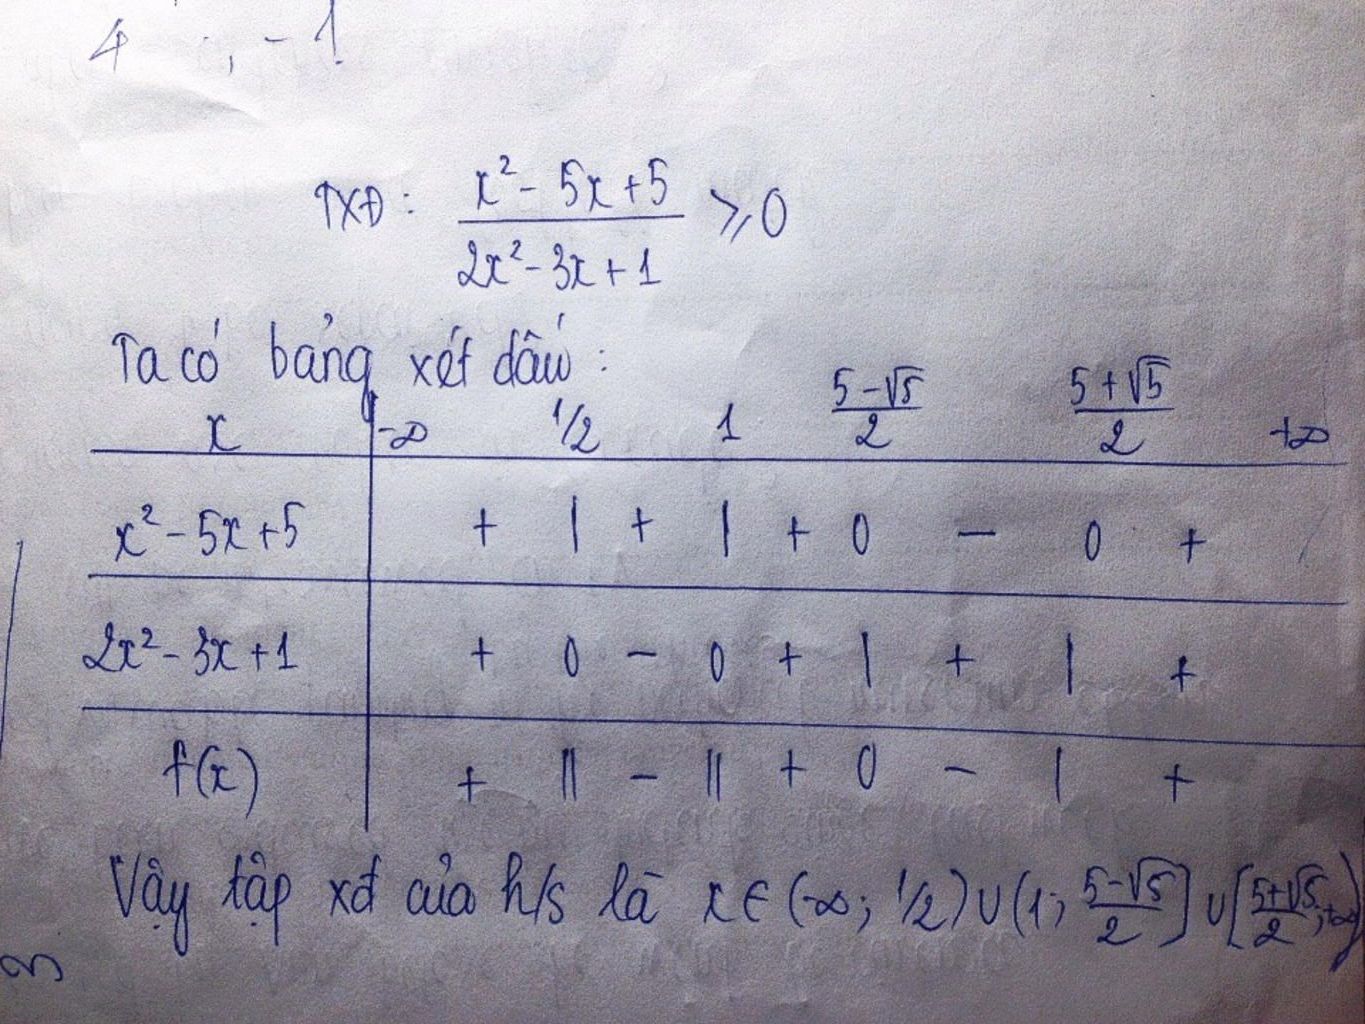 4 -1
TXĐ: (x² - 5x + 5)/(2x² - 3x + 1) ⩾ 0
Ta có bảng xét dấu:
x | -∞ 1/2 1 (5 - √5)/2 (5 + √5)/2 +∞
x² - 5x + 5 | + | + | + 0 - 0 +
2x² - 3x + 1 | + 0 - 0 + | + | +
f(x) | + || - || + 0 - | +
Vậy tập xđ của h/s là x ∈ (-∞; 1/2) ∪ (1; (5-√5)/2] ∪ [(5+√5)/2; +∞)